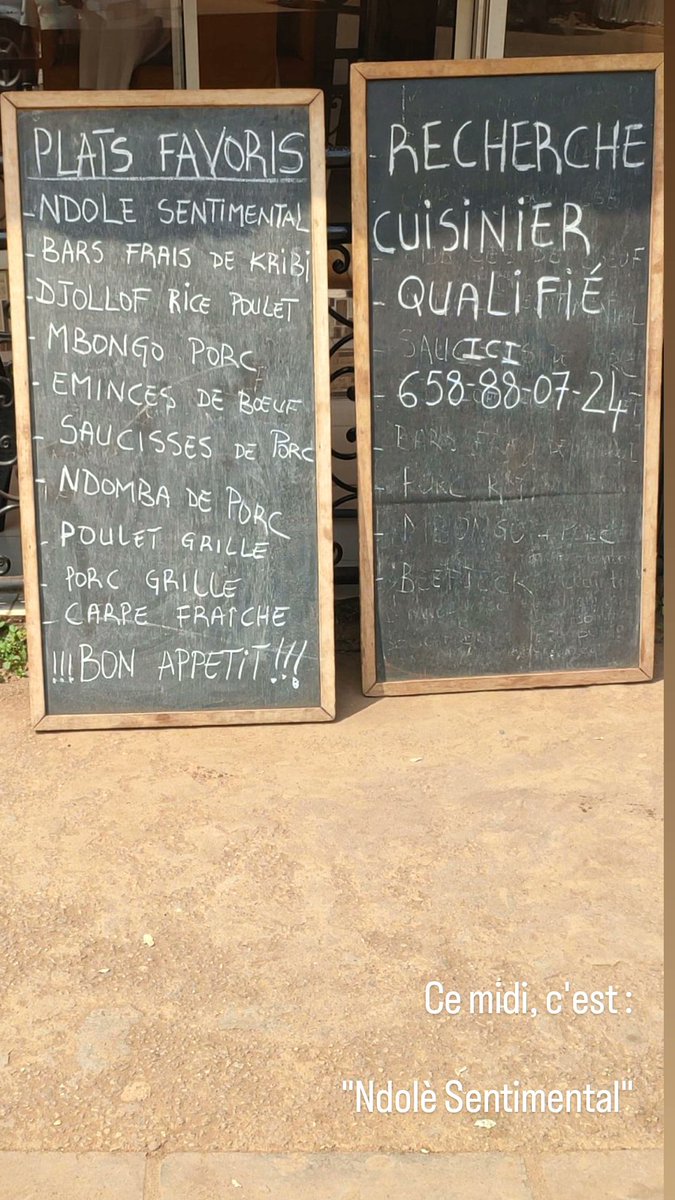 PLATS FAVORIS
- NDOLE SENTIMENTAL
- BARS FRAIS DE KRIBI
- DJOLLOF RICE POULET
- MBONGO PORC
- EMINCES DE BŒUF
- SAUCISSES DE PORC
- NDOMBA DE PORC
- POULET GRILLE
- PORC GRILLE
- CARPE FRAÎCHE
!!!BON APPETIT!!!
- RECHERCHE
CUISINIER
- QUALIFIÉ
ICI
- 658-88-07-24
- MBONGO PORC
- BEEFTECK
Ce midi, c'est :
"Ndolè Séntimental"